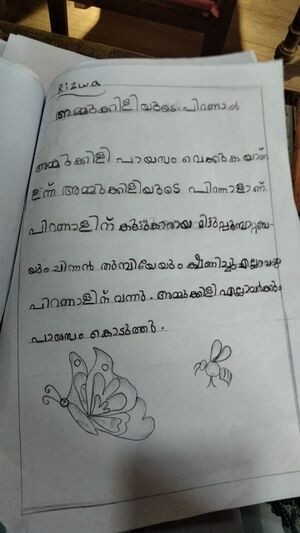 Rizwa
അമ്മുക്കിളിയുടെ പിറന്നാൾ
അമ്മുക്കിളി പായസം വെക്കുകയാണ്
ഇന്ന് അമ്മുക്കിളിയുടെ പിറന്നാളാണ്.
പിറന്നാളിന് കൂട്ടുകാരായ മിട്ടുപ്പൂമ്പാറ്റയെ-
യും ചിന്നൻ തുമ്പിയേയും ക്ഷണിച്ചു എല്ലാവരും
പിറന്നാളിന് വന്നു. അമ്മുക്കിളി എല്ലാവർക്കും
പായസം കൊടുത്തു.